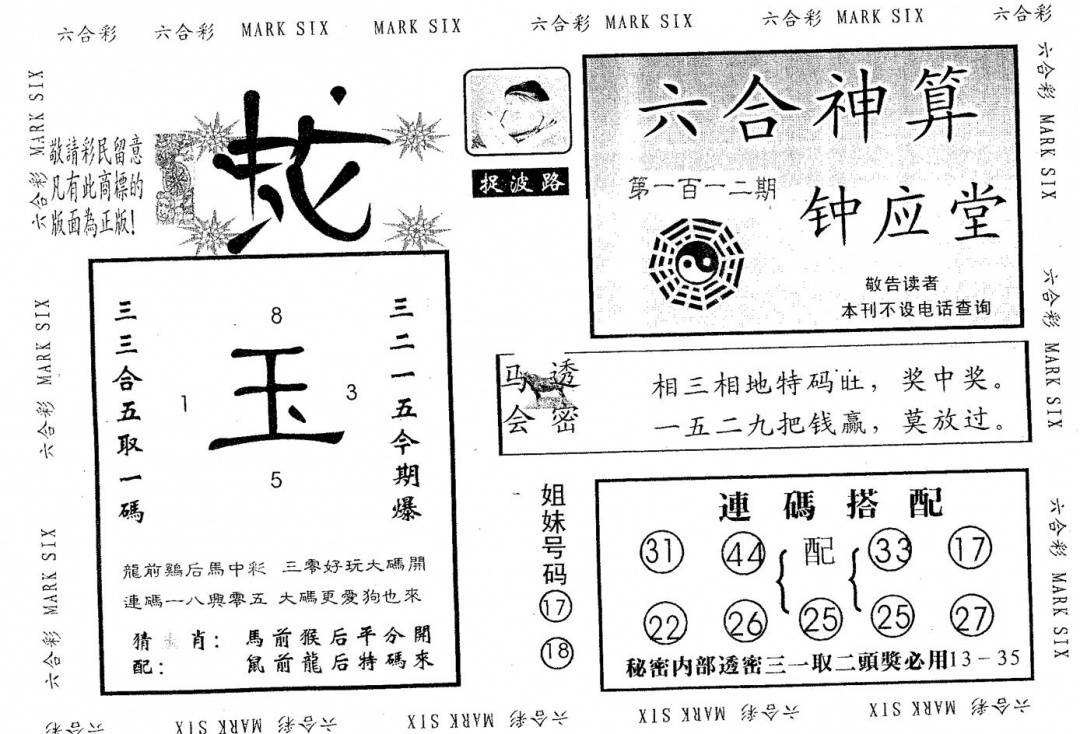 六合彩 六合彩 MARK SIX MARK SIX 六合彩 MARK SIX 六合彩 MARK SIX 六合彩
六合彩 MARK SIX
敬請彩民留意
凡有此商標的
版面為正版!
蛇
捉波路
六合神算
第一百一二期
钟应堂
敬告读者
本刊不设电话查询
六合彩 MARK SIX
六合彩 MARK SIX
三三合五取一碼
8
1
玉
3
5
三二一五今期爆
龍前鷄后馬中彩 三零好玩大碼開
連碼一八興零五 大碼更愛狗也來
猜生肖: 馬前猴后平分開
配: 鼠前龍后特碼來
六合彩 MARK SIX
六合彩 MARK SIX
马会透密
相三相地特码旺，奖中奖。
一五二九把钱赢，莫放过。
姐妹号码
17
18
連碼搭配
31 44 配 33 17
22 26 25 25 27
秘密内部透密三一取二頭獎必用13-35
六合彩 MARK SIX
六合彩 MARK SIX 六合彩 MARK SIX 六合彩 MARK SIX 六合彩 MARK SIX 六合彩